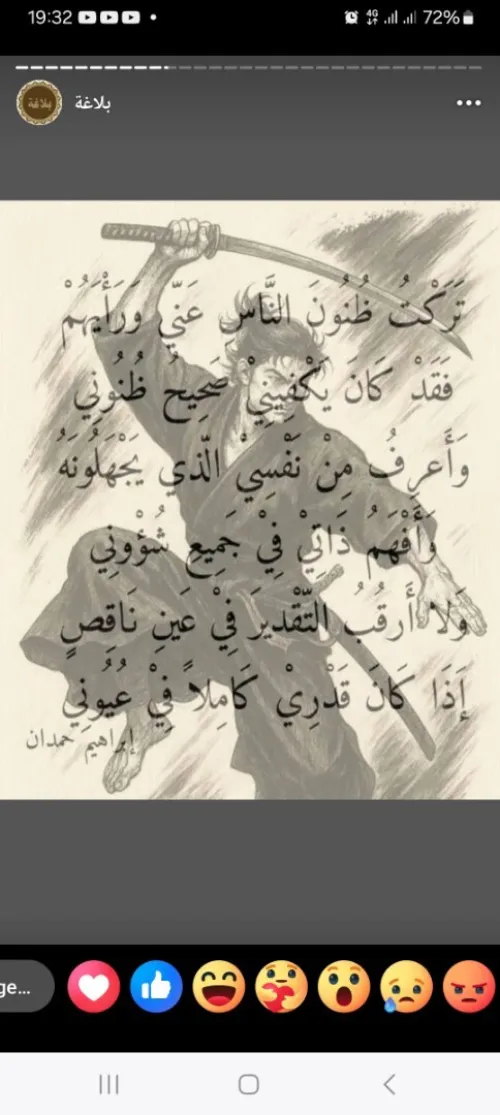 19:32
4G 72%
بلاغة
بلاغة
تَرَكْتُ ظُنُونَ النَّاسِ عَنّي وَرَأْيَهُمْ
فَقَدْ كَانَ يَكْفِينِيْ صَحِيحُ ظُنُونِي
وَأَعرِفُ مِنْ نَفْسِيْ الّذي يَجْهَلُونَهُ
وَأَفْهَمُ ذَاتِيْ فِيْ جَمِيعِ شُؤْونِي
وَلا أَرقُبُ التّقْدِيرَ فِيْ عَينِ نَاقِصٍ
إَذَا كَانَ قَدْرِيْ كَامِلاً فِيْ عُيُونِي
إبراهيم حمدان
ge...